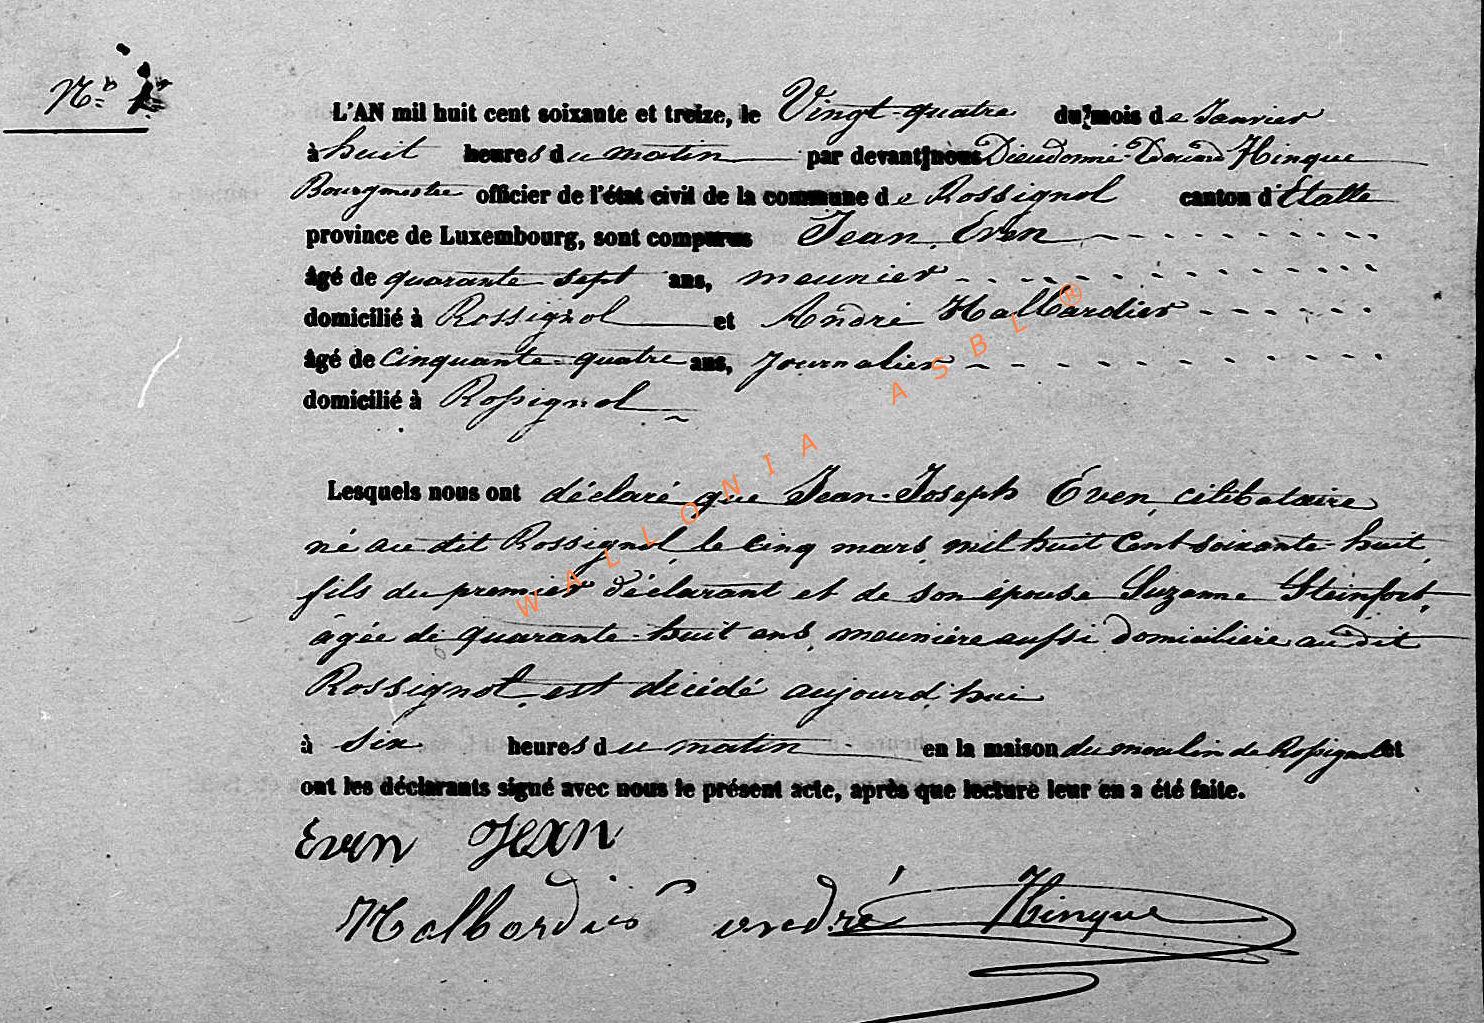 N°
L'AN mil huit cent soixante et treize, le Vingt-quatre du mois de Janvier
à huit heures du matin par devant nous Dieudonné-Edouard Hinque
Bourgmestre officier de l'état civil de la commune de Rossignol canton d'Etalle
province de Luxembourg, sont comparus Jean Even
âgé de quarante sept ans, meunier
domicilié à Rossignol et André Halbardier
âgé de cinquante-quatre ans, journalier
domicilié à Rossignol
Lesquels nous ont déclaré que Jean-Joseph Even, célibataire
né au dit Rossignol, le cinq mars mil huit cent soixante huit,
fils du premier déclarant et de son épouse Suzanne Steinfort,
âgée de quarante-huit ans, meunière aussi domiciliée au dit
Rossignol, est décédé aujourd'hui
à six heures du matin en la maison du moulin de Rossignol et
ont les déclarants signé avec nous le présent acte, après que lecture leur en a été faite.
Even Jean
Halbardier andré Hinque
WALLONIA ASBL ®